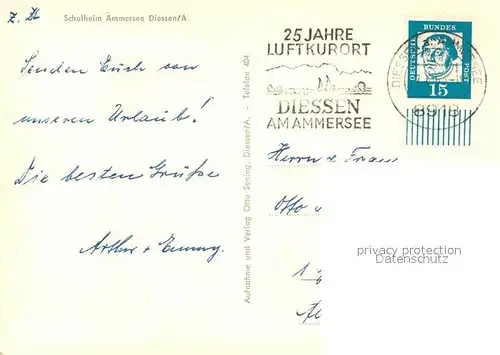 Z. Zt.
Schulheim Ammersee Diessen/A.
Senden Euch von
unserem Urlaub!
Die besten Grüße
Arthur +
Aufnahme und Verlag Otto Sening, Diessen/A. - Telefon 404
25 JAHRE
LUFTKURORT
DIESSEN
AM AMMERSEE
DEUTSCHE
BUNDES
POST
15
8918
Herrn u Frau
Otto
privacy protection
Datenschutz